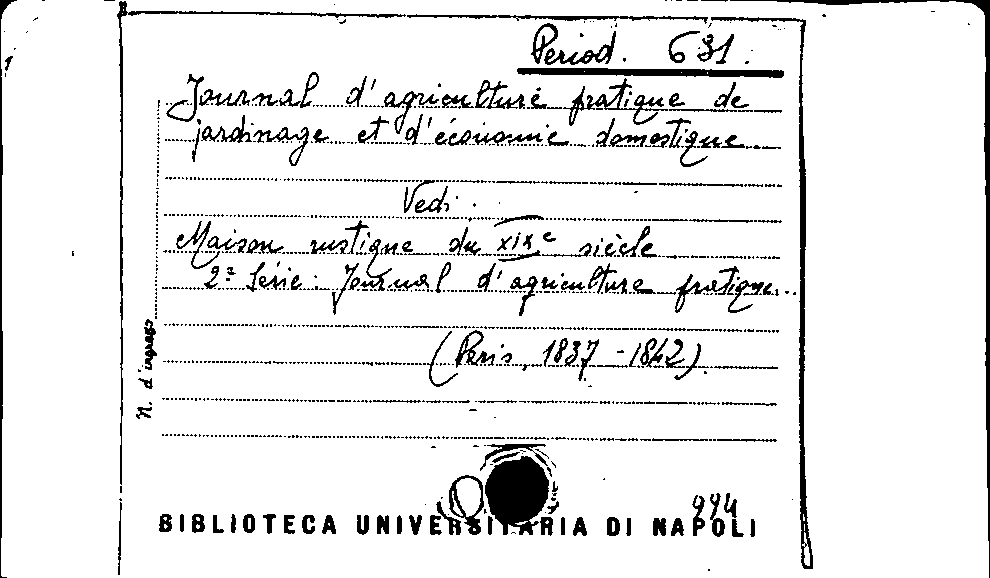 Period. 631.
Journal d'agriculture pratique de
jardinage et d'économie domestique.
Vedi.
Maison rustique du XIXe siècle
2ª Série: Journal d'agriculture pratique..
(Paris, 1837-1842).
N. d'ingresso
994
BIBLIOTECA UNIVERSITARIA DI NAPOLI